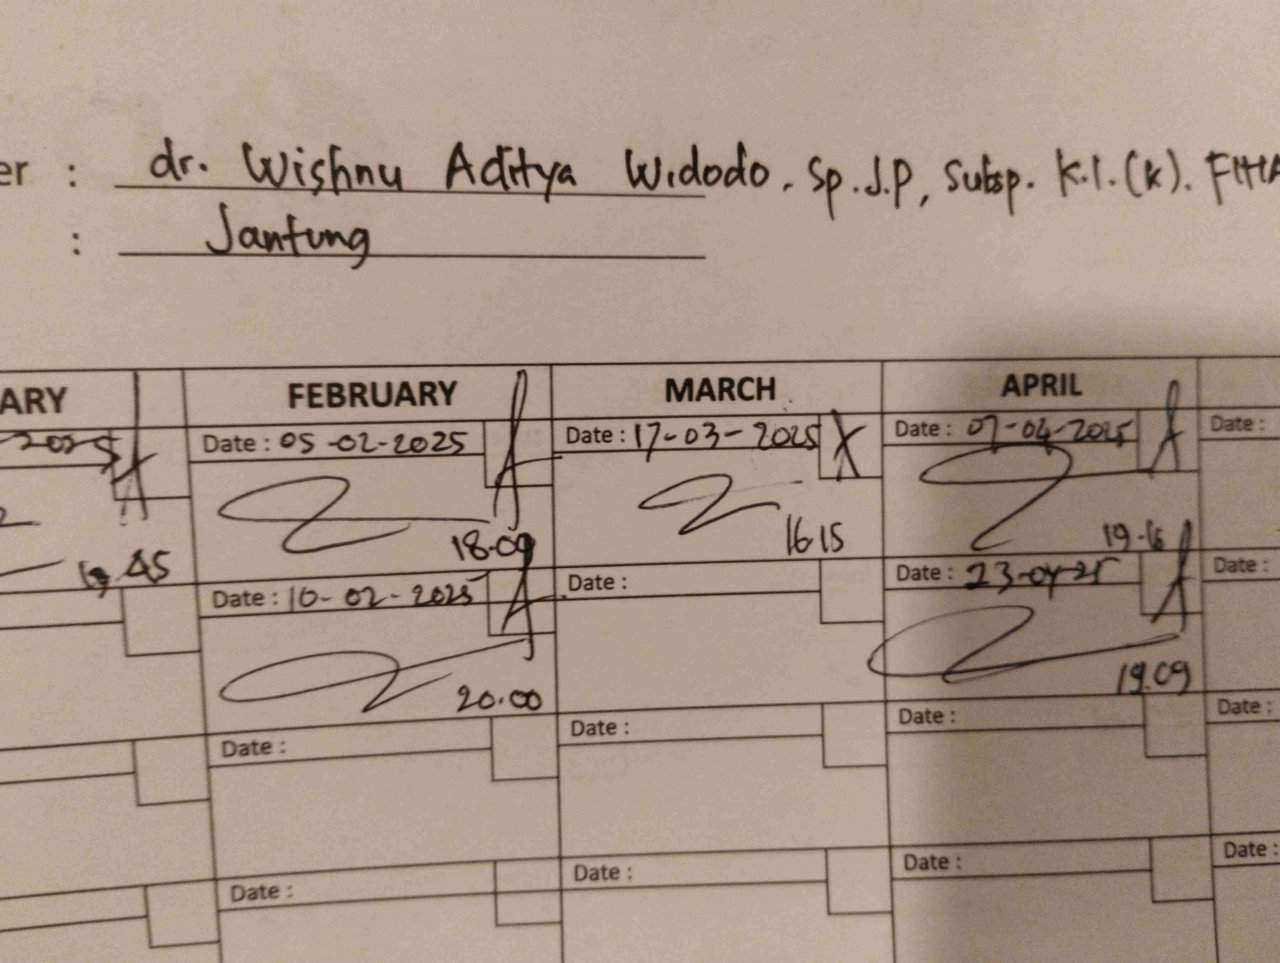 er : dr. Wishnu Aditya Widodo. Sp.J.P, Subsp. K.I.(K). FIHA
: Jantung
ARY FEBRUARY MARCH APRIL
2025 Date : 05-02-2025 Date : 17-03-2025 Date : 07-04-2025 Date :
.45 18.09 16.15 19.16
Date : 10-02-2025 Date : Date : 23-04-25 Date :
20.00 19.09
Date : Date : Date : Date :
Date : Date : Date : Date :